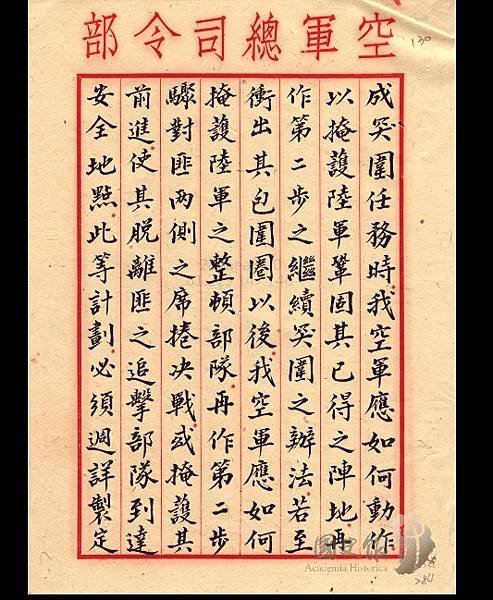 空軍總司令部
130
成突圍任務時我空軍應如何動作
以掩護陸軍鞏固其已得之陣地再
作第二步之繼續突圍之辦法若至
衝出其包圍圈以後我空軍應如何
掩護陸軍之整頓部隊再作第二步
驟對匪兩側之席捲決戰或掩護其
前進使其脫離匪之追擊部隊到達
安全地點此等計劃必須週詳製定
國史館
Academia Historica